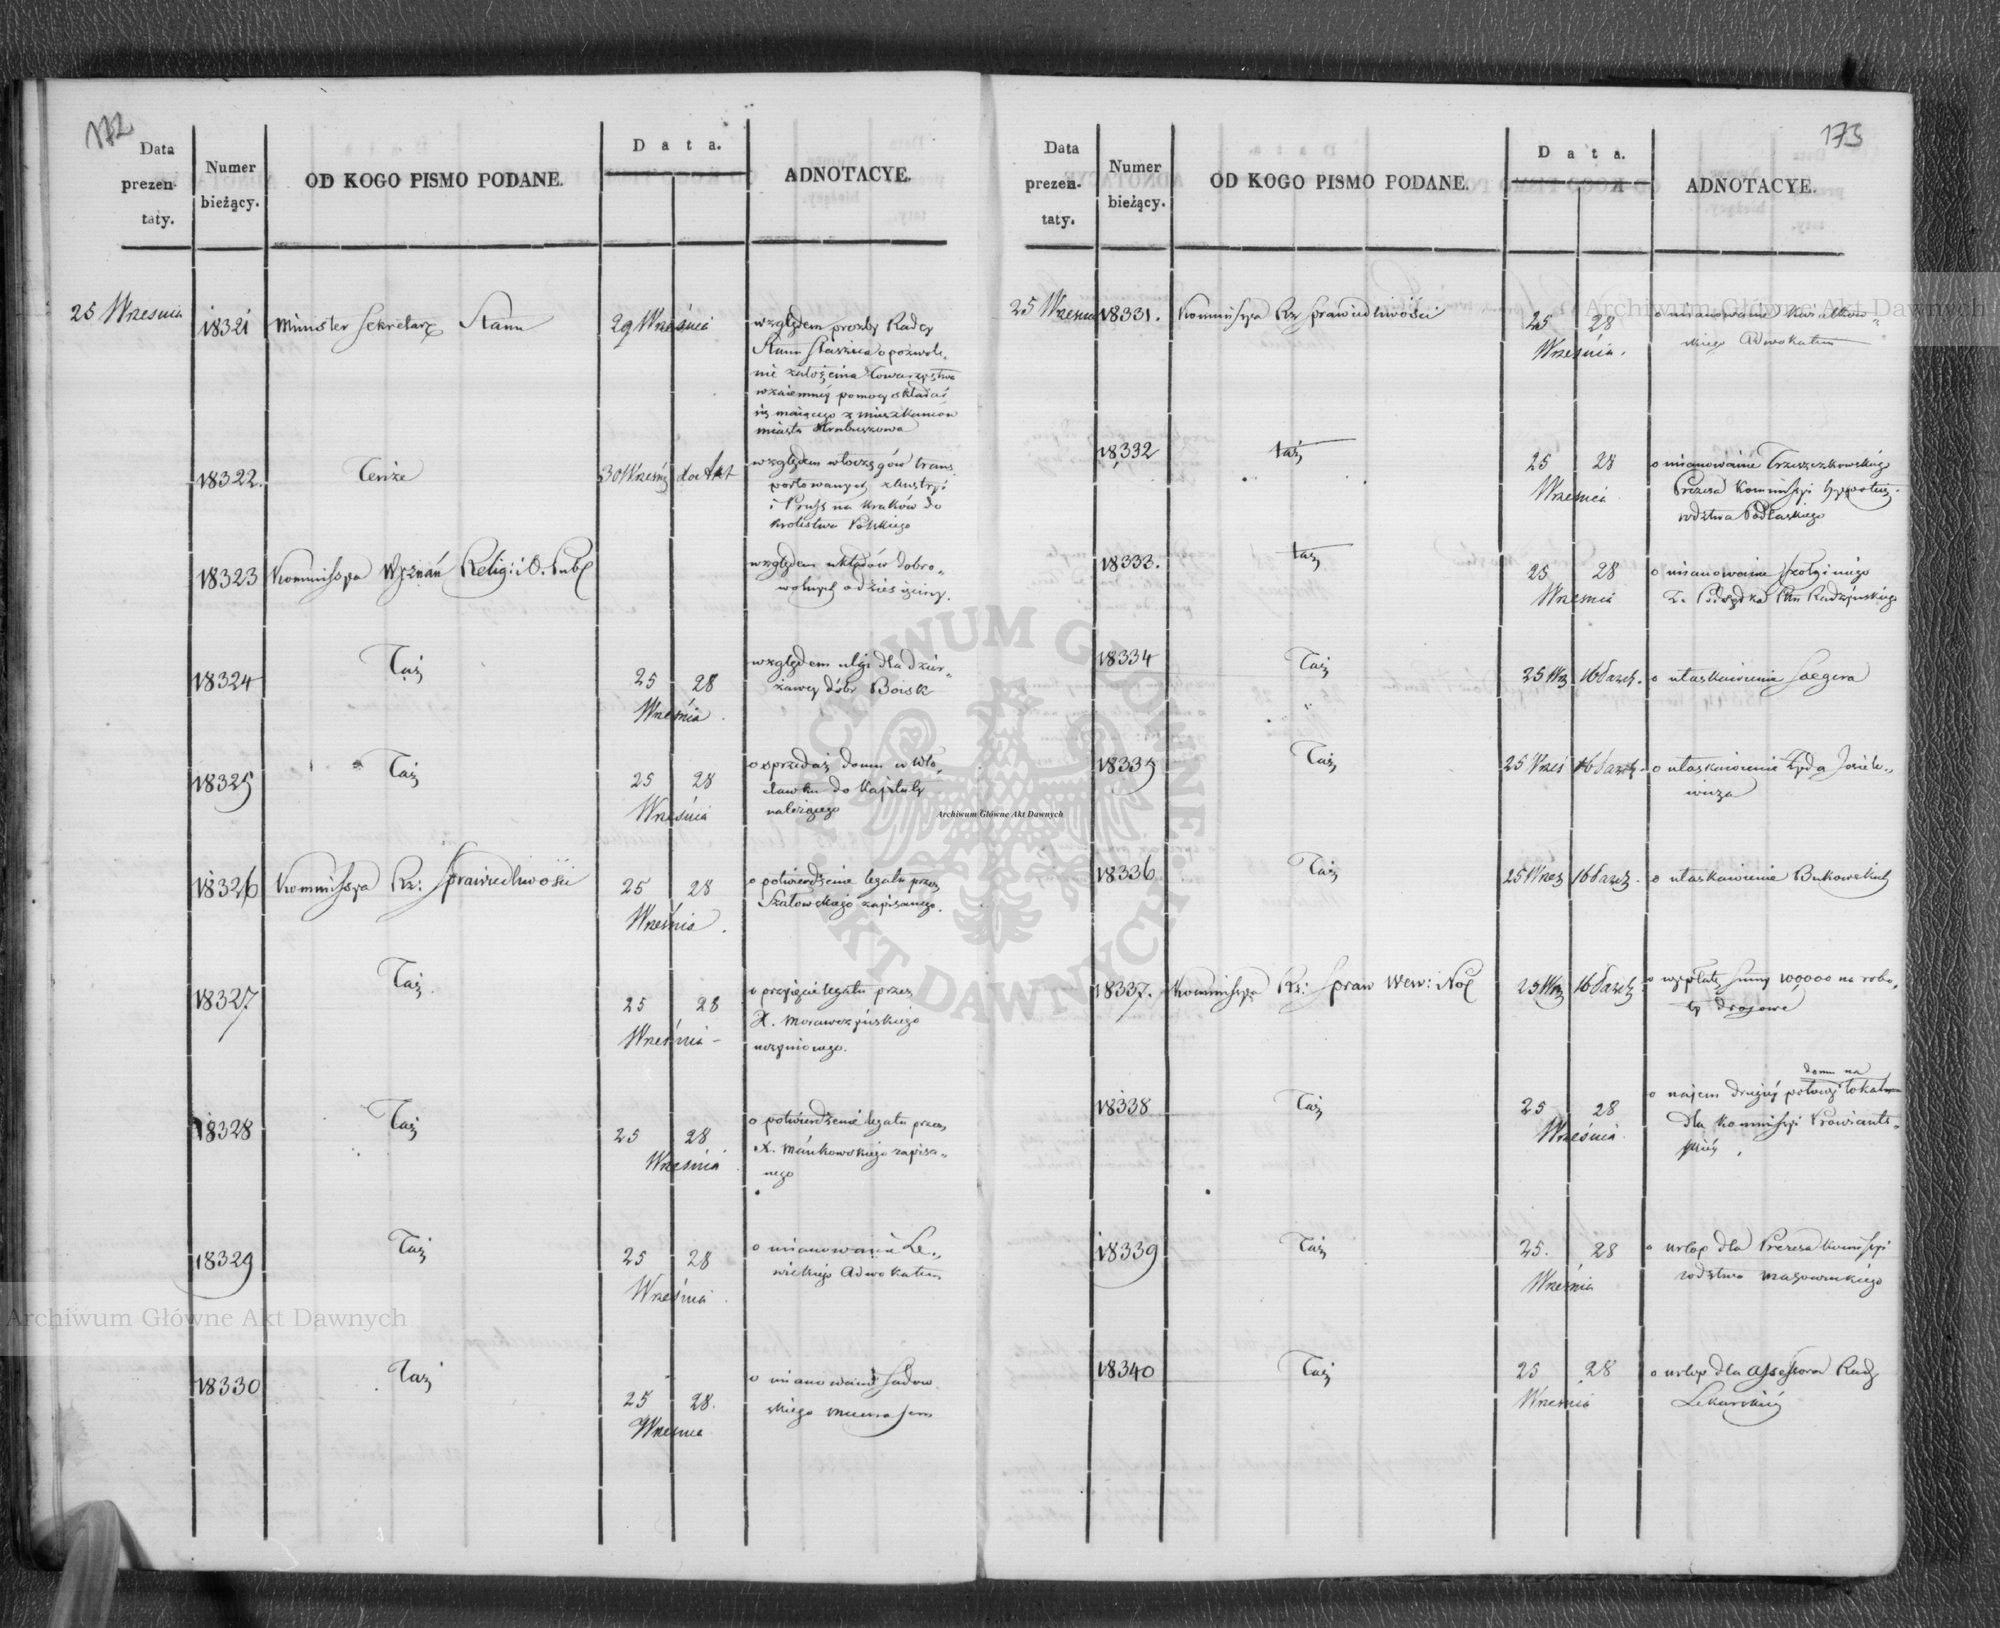 172
Data prezen- taty.
Numer bieżący.
OD KOGO PISMO PODANE.
Data.
ADNOTACYE.
25 Wrzesnia
18321 Minister Sekretarz Stanu
29 Września
względem prozby Radcy
Stanu Staszica o pozwole-
nie założenia Towarzystwa
wzaiemnéy pomocy składać
się maiącego z mieszkańców
miasta Hrubieszowa
18322. Tenże
30 Wrześ
względem włóczęgów trans
portowanych z Austryi
i Pruss na Kraków do
Krolestwa Polskiego
18323 Kommissya Wyznań Relig: i O. Publ
względem układów dobro„
wolnych o dziesięciny.
18324 Taż
25 28
Września
względem ulgi dla dzier„
żawcy dóbr Boisk
18325 Taż
25 28
Września
o sprzedaż domu w Wło„
cławku do Kapituły
należącego
18326 Kommissya Rz: Sprawiedliwości
25 28
Września.
o potwierdzenie legatu przez
Szatowskiego zapisanego.
18327 Taż
25 28
Września
o przyjęcie legatu przez
X. Morawczyńskiego
uczynionego.
18328 Taż
25 28
Września
o potwierdzenie legatu przez
X. Mańkowskiego zapisa„
nego
18329 Taż
25 28
Września
o mianowanie Le„
wickiego Adwokatem
18330 Taż
25 28.
Wrzesnia
o mianowanie Sadow
skiego
173
Data prezen- taty.
Numer bieżący.
OD KOGO PISMO PODANE.
Data.
ADNOTACYE.
25 Wrzesnia
18331. Kommissya Rz Sprawiedliwości
25 28
Września.
o mianowanie Kwiatkow„
skiego Adwokatem
18332 taż
25 28
Wrzesnia
o mianowanie Trzeszczkowskiego
Prezesa Kommissyi Hypoteczn.
wdztwa Podlaskiego
18333. taż
25 28
Wrzesnia
o mianowanie
Z. Podsędka Ptu Radzyńskiego
18334 Taż
25 Wrz 16 Pazdz.
o ułaskawienie Saegera
18335 Taż
25 Wrześ 16 Pazdz.
o ułaskawienie Żyda Josiele„
wicza
18336 Taż
25 Wrzes 16 Pazdz.
o ułaskawienie
18337. Kommissya Rz: Spraw Wew: i Pol
25 Wrz 16 Pazdz
o wypłatę summy 100000 na robo„
ty drogowe
18338 Taż
25 28
Września.
domu na
o najem drugiéy połowy lokal
dla Kommissyi Prowiants„
kiéy.
18339 Taż
25. 28
Września
o urlop dla Prezesa Komissyi
wdztwa Mazowieckiego
18340 Taż
25 28
Wrzesnia
o urlop dla Assessora Rady
Lekarskiéy
Archiwum Główne Akt Dawnych
Archiwum Główne Akt Dawnych
ARCHIWUM GŁÓWNE AKT DAWNYCH
Archiwum Główne Akt Dawnych